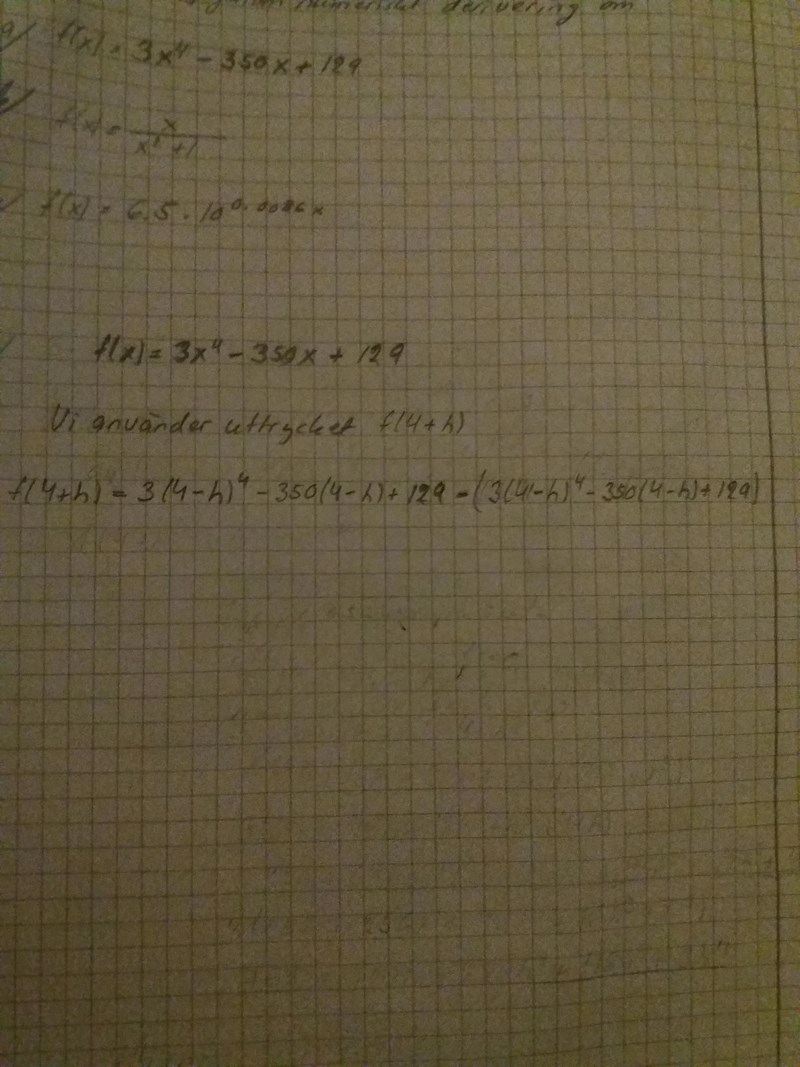 numeriskt derivering om
a/ f(x) = 3x⁴ - 350x + 129
b/ f(x) = x / x² + 1
f(x) = 6.5 · 10^0.0086x
f(x) = 3x⁴ - 350x + 129
Vi använder uttrycket f(4+h)
f(4+h) = 3(4-h)⁴ - 350(4-h) + 129 - (3(4-h)⁴ - 350(4-h) + 129)